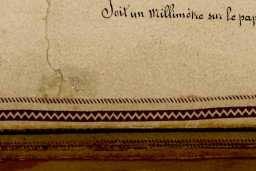 Soit un Millimètre sur le pap